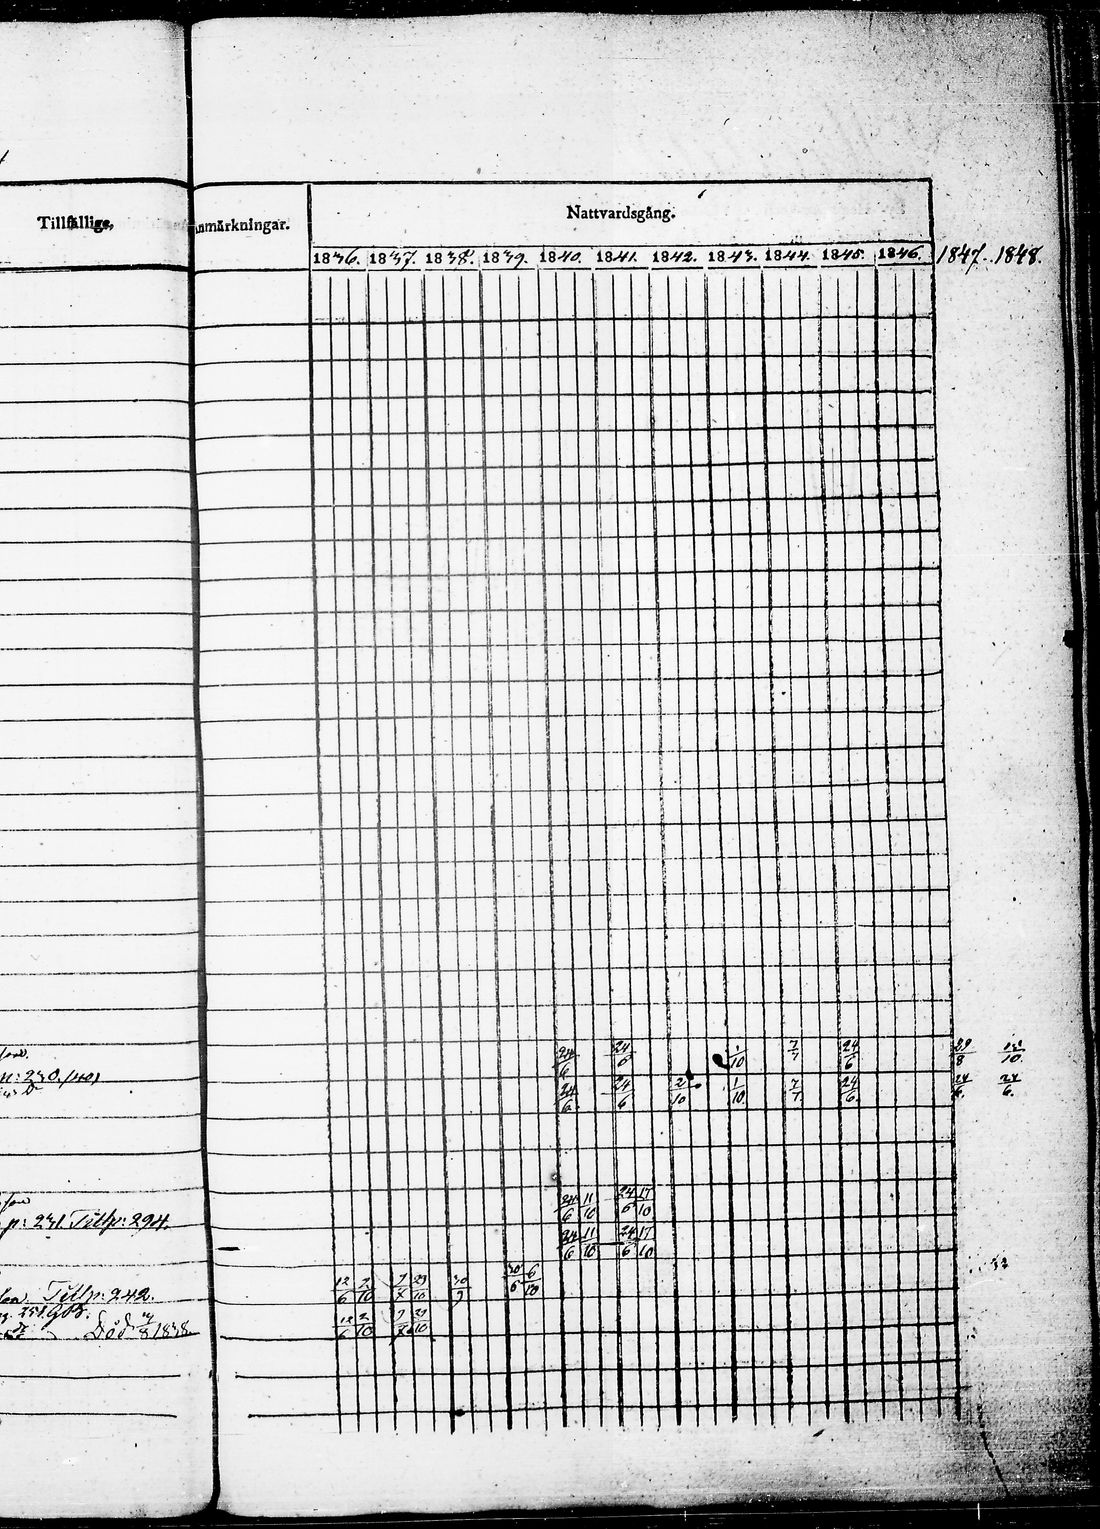 Tillfällige,
Anmärkningar.
Nattvardsgång.
1836. 1837. 1838. 1839. 1840. 1841. 1842. 1843. 1844. 1845. 1846. 1847. 1848.
24/6 24/6 1/10 7/7 24/6 29/8 12/10
24/6 24/6 2/10 1/10 7/7 24/6 24/6 24/6
24/6 11/10 24/6 17/10
p: 231. Till p: 294.
24/6 11/10 24/6 17/10
Till p: 242. 12/6 2/10 7/7 29/10 30/9 30/6 6/10
Död /8 1838 12/6 2/10 7/7 29/10